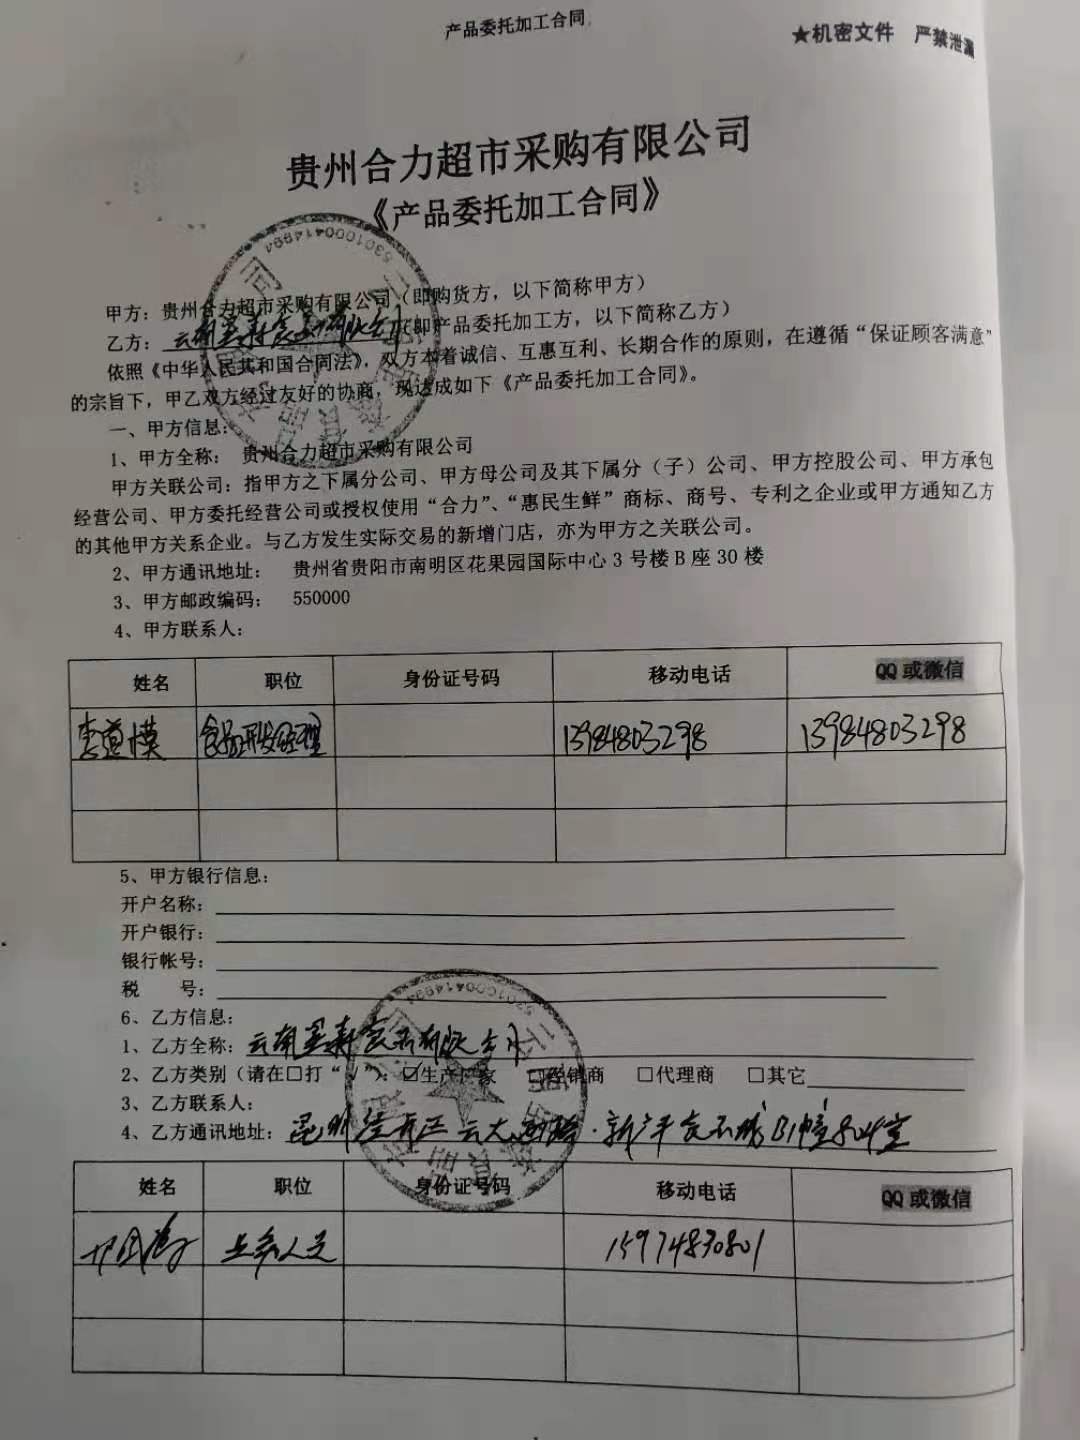 产品委托加工合同
★机密文件 严禁泄漏
贵州合力超市采购有限公司
《产品委托加工合同》
甲方：贵州合力超市采购有限公司（即购货方，以下简称甲方）
乙方：云南 有限公司（即产品委托加工方，以下简称乙方）
依照《中华人民共和国合同法》，双方本着诚信、互惠互利、长期合作的原则，在遵循“保证顾客满意”
的宗旨下，甲乙双方经过友好的协商，现达成如下《产品委托加工合同》。
一、甲方信息：
1、甲方全称： 贵州合力超市采购有限公司
甲方关联公司：指甲方之下属分公司、甲方母公司及其下属分（子）公司、甲方控股公司、甲方承包
经营公司、甲方委托经营公司或授权使用“合力”、“惠民生鲜”商标、商号、专利之企业或甲方通知乙方
的其他甲方关系企业。与乙方发生实际交易的新增门店，亦为甲方之关联公司。
2、甲方通讯地址： 贵州省贵阳市南明区花果园国际中心 3 号楼 B 座 30 楼
3、甲方邮政编码： 550000
4、甲方联系人：
姓名 职位 身份证号码 移动电话 QQ 或微信
李道模 食品开发经理 13984803298 13984803298
5、甲方银行信息：
开户名称：
开户银行：
银行帐号：
税 号：
6、乙方信息：
1、乙方全称：云南 食品有限公司
2、乙方类别（请在□打“√”）：☑生产厂家 □经销商 □代理商 □其它
3、乙方联系人：
4、乙方通讯地址：昆明 区云大 食品城B1幢 室
姓名 职位 身份证号码 移动电话 QQ 或微信
业务人员 15974830801
5301000414994
5301000414994